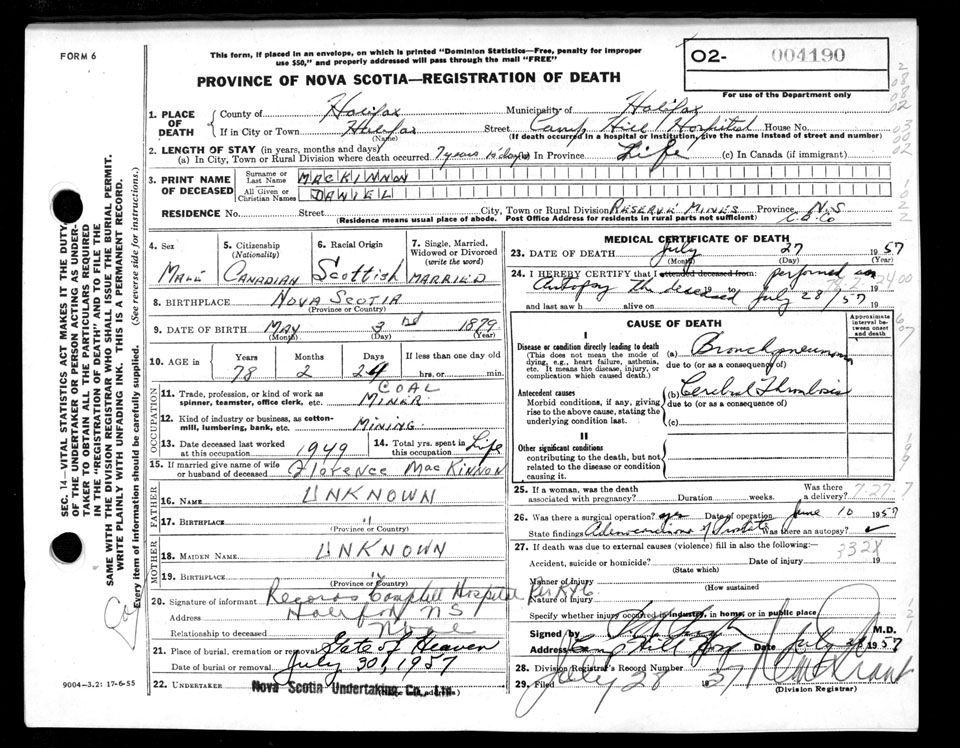 FORM 6
This form, if placed in an envelope, on which is printed "Dominion Statistics—Free, penalty for improper
use $50," and properly addressed will pass through the mail "FREE"
PROVINCE OF NOVA SCOTIA—REGISTRATION OF DEATH
O2- 004190
For use of the Department only
1. PLACE OF DEATH { County of Halifax Municipality of Halifax
If in City or Town Halifax (Name) Street Camp Hill Hospital House No.
(If death occurred in a hospital or institution, give the name instead of street and number)
2. LENGTH OF STAY (in years, months and days)
(a) In City, Town or Rural Division where death occurred 7 years 15 days (b) In Province Life (c) In Canada (if immigrant)
3. PRINT NAME OF DECEASED { Surname or Last Name MACKINNON
All Given or Christian Names DANIEL
RESIDENCE No. Street City, Town or Rural Division RESERVE MINES Province N.S
(Residence means usual place of abode. Post Office Address for residents in rural parts not sufficient) C.B. Co
4. Sex MALE
5. Citizenship (Nationality) CANADIAN
6. Racial Origin Scottish
7. Single, Married, Widowed or Divorced (write the word) MARRIED
8. BIRTHPLACE NOVA SCOTIA
(Province or Country)
9. DATE OF BIRTH MAY 3rd 1879
(Month) (Day) (Year)
10. AGE in Years 78 Months 2 Days 24 If less than one day old hrs. or min.
OCCUPATION
11. Trade, profession, or kind of work as spinner, teamster, office clerk, etc. COAL MINER
12. Kind of industry or business, as cotton-mill, lumbering, bank, etc. MINING
13. Date deceased last worked at this occupation 1949
14. Total yrs. spent in this occupation Life
15. If married give name of wife or husband of deceased Florence MacKinnon
FATHER
16. NAME UNKNOWN
17. BIRTHPLACE "
(Province or Country)
MOTHER
18. MAIDEN NAME UNKNOWN
19. BIRTHPLACE "
(Province or Country)
20. Signature of informant Records Camphill Hospital
Address Halifax NS
Relationship to deceased None
21. Place of burial, cremation or removal Gate of Heaven
Date of burial or removal July 30 1957
22. UNDERTAKER Nova Scotia Undertaking Co., Ltd.
9004-3.2: 17-6-55
MEDICAL CERTIFICATE OF DEATH
23. DATE OF DEATH July 27 1957
(Month) (Day) (Year)
24. I HEREBY CERTIFY that I attended deceased from: performed an
Autopsy the deceased July 28/57 19
and last saw h alive on 19
CAUSE OF DEATH
Approximate interval between onset and death
I
Disease or condition directly leading to death
(This does not mean the mode of dying, e.g., heart failure, asthenia, etc. It means the disease, injury, or complication which caused death.)
(a) Bronchopneumonia
due to (or as a consequence of)
Antecedent causes
Morbid conditions, if any, giving rise to the above cause, stating the underlying condition last.
(b) Cerebral Thrombosis
due to (or as a consequence of)
(c)
II
Other significant conditions
contributing to the death, but not related to the disease or condition causing it.
25. If a woman, was the death associated with pregnancy? Duration weeks. Was there a delivery? 7-27-7
26. Was there a surgical operation? yes Date of operation June 10 1957
State findings Adenocarcinoma of Prostate Was there an autopsy? ✓
27. If death was due to external causes (violence) fill in also the following:—
332X
Accident, suicide or homicide? Date of injury 19
(State which)
Manner of injury
(How sustained)
Nature of injury
Specify whether injury occurred in industry, in home, or in public place
Signed by M.D.
Address Camp Hill Hosp Date July 28 1957
28. Division Registrar's Record Number
29. Filed July 28 1957
(Division Registrar)
SEC. 14—VITAL STATISTICS ACT MAKES IT THE DUTY
OF THE UNDERTAKER OR PERSON ACTING AS UNDER-
TAKER TO OBTAIN ALL THE PARTICULARS REQUIRED
IN THE "REGISTRATION OF DEATH" AND TO FILE THE
SAME WITH THE DIVISION REGISTRAR WHO SHALL ISSUE THE BURIAL PERMIT.
WRITE PLAINLY WITH UNFADING INK. THIS IS A PERMANENT RECORD.
Every item of information should be carefully supplied. (See reverse side for instructions.)